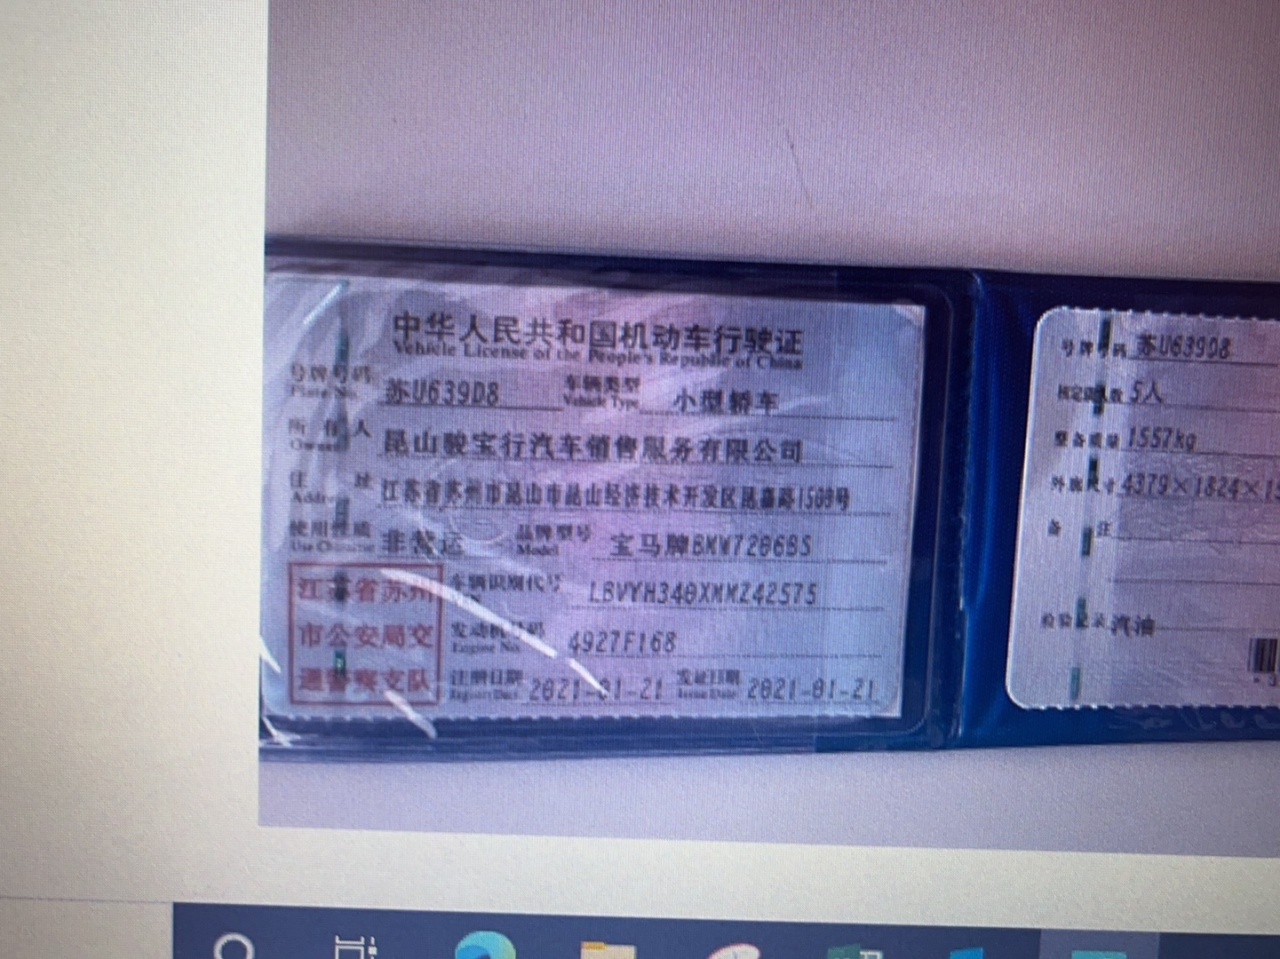 中华人民共和国机动车行驶证
Vehicle License of the People's Republic of China
号牌号码 苏U639D8 车辆类型 小型轿车
Plate No. Vehicle Type
所有人 昆山骏宝行汽车销售服务有限公司
Owner
住址 江苏省苏州市昆山市昆山经济技术开发区昆嘉路1509号
Address
使用性质 非营运 品牌型号 宝马牌BMW7206BS
Use Character Model
江苏省苏州
市公安局交
通警察支队
车辆识别代号 LBVYH340XMMZ42575
发动机号码 4927F168
Engine No.
注册日期 2021-01-21 发证日期 2021-01-21
Register Date Issue Date
号牌号码 苏U639D8
核定载人数 5人
整备质量 1557kg
外廓尺寸 4379×1824×1
备注
检验记录 汽油